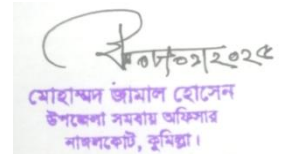 ০৮/০২/২০২৫
মোহাম্মদ জামাল হোসেন
উপজেলা সমবায় অফিসার
নাঙ্গলকোট, কুমিল্লা।